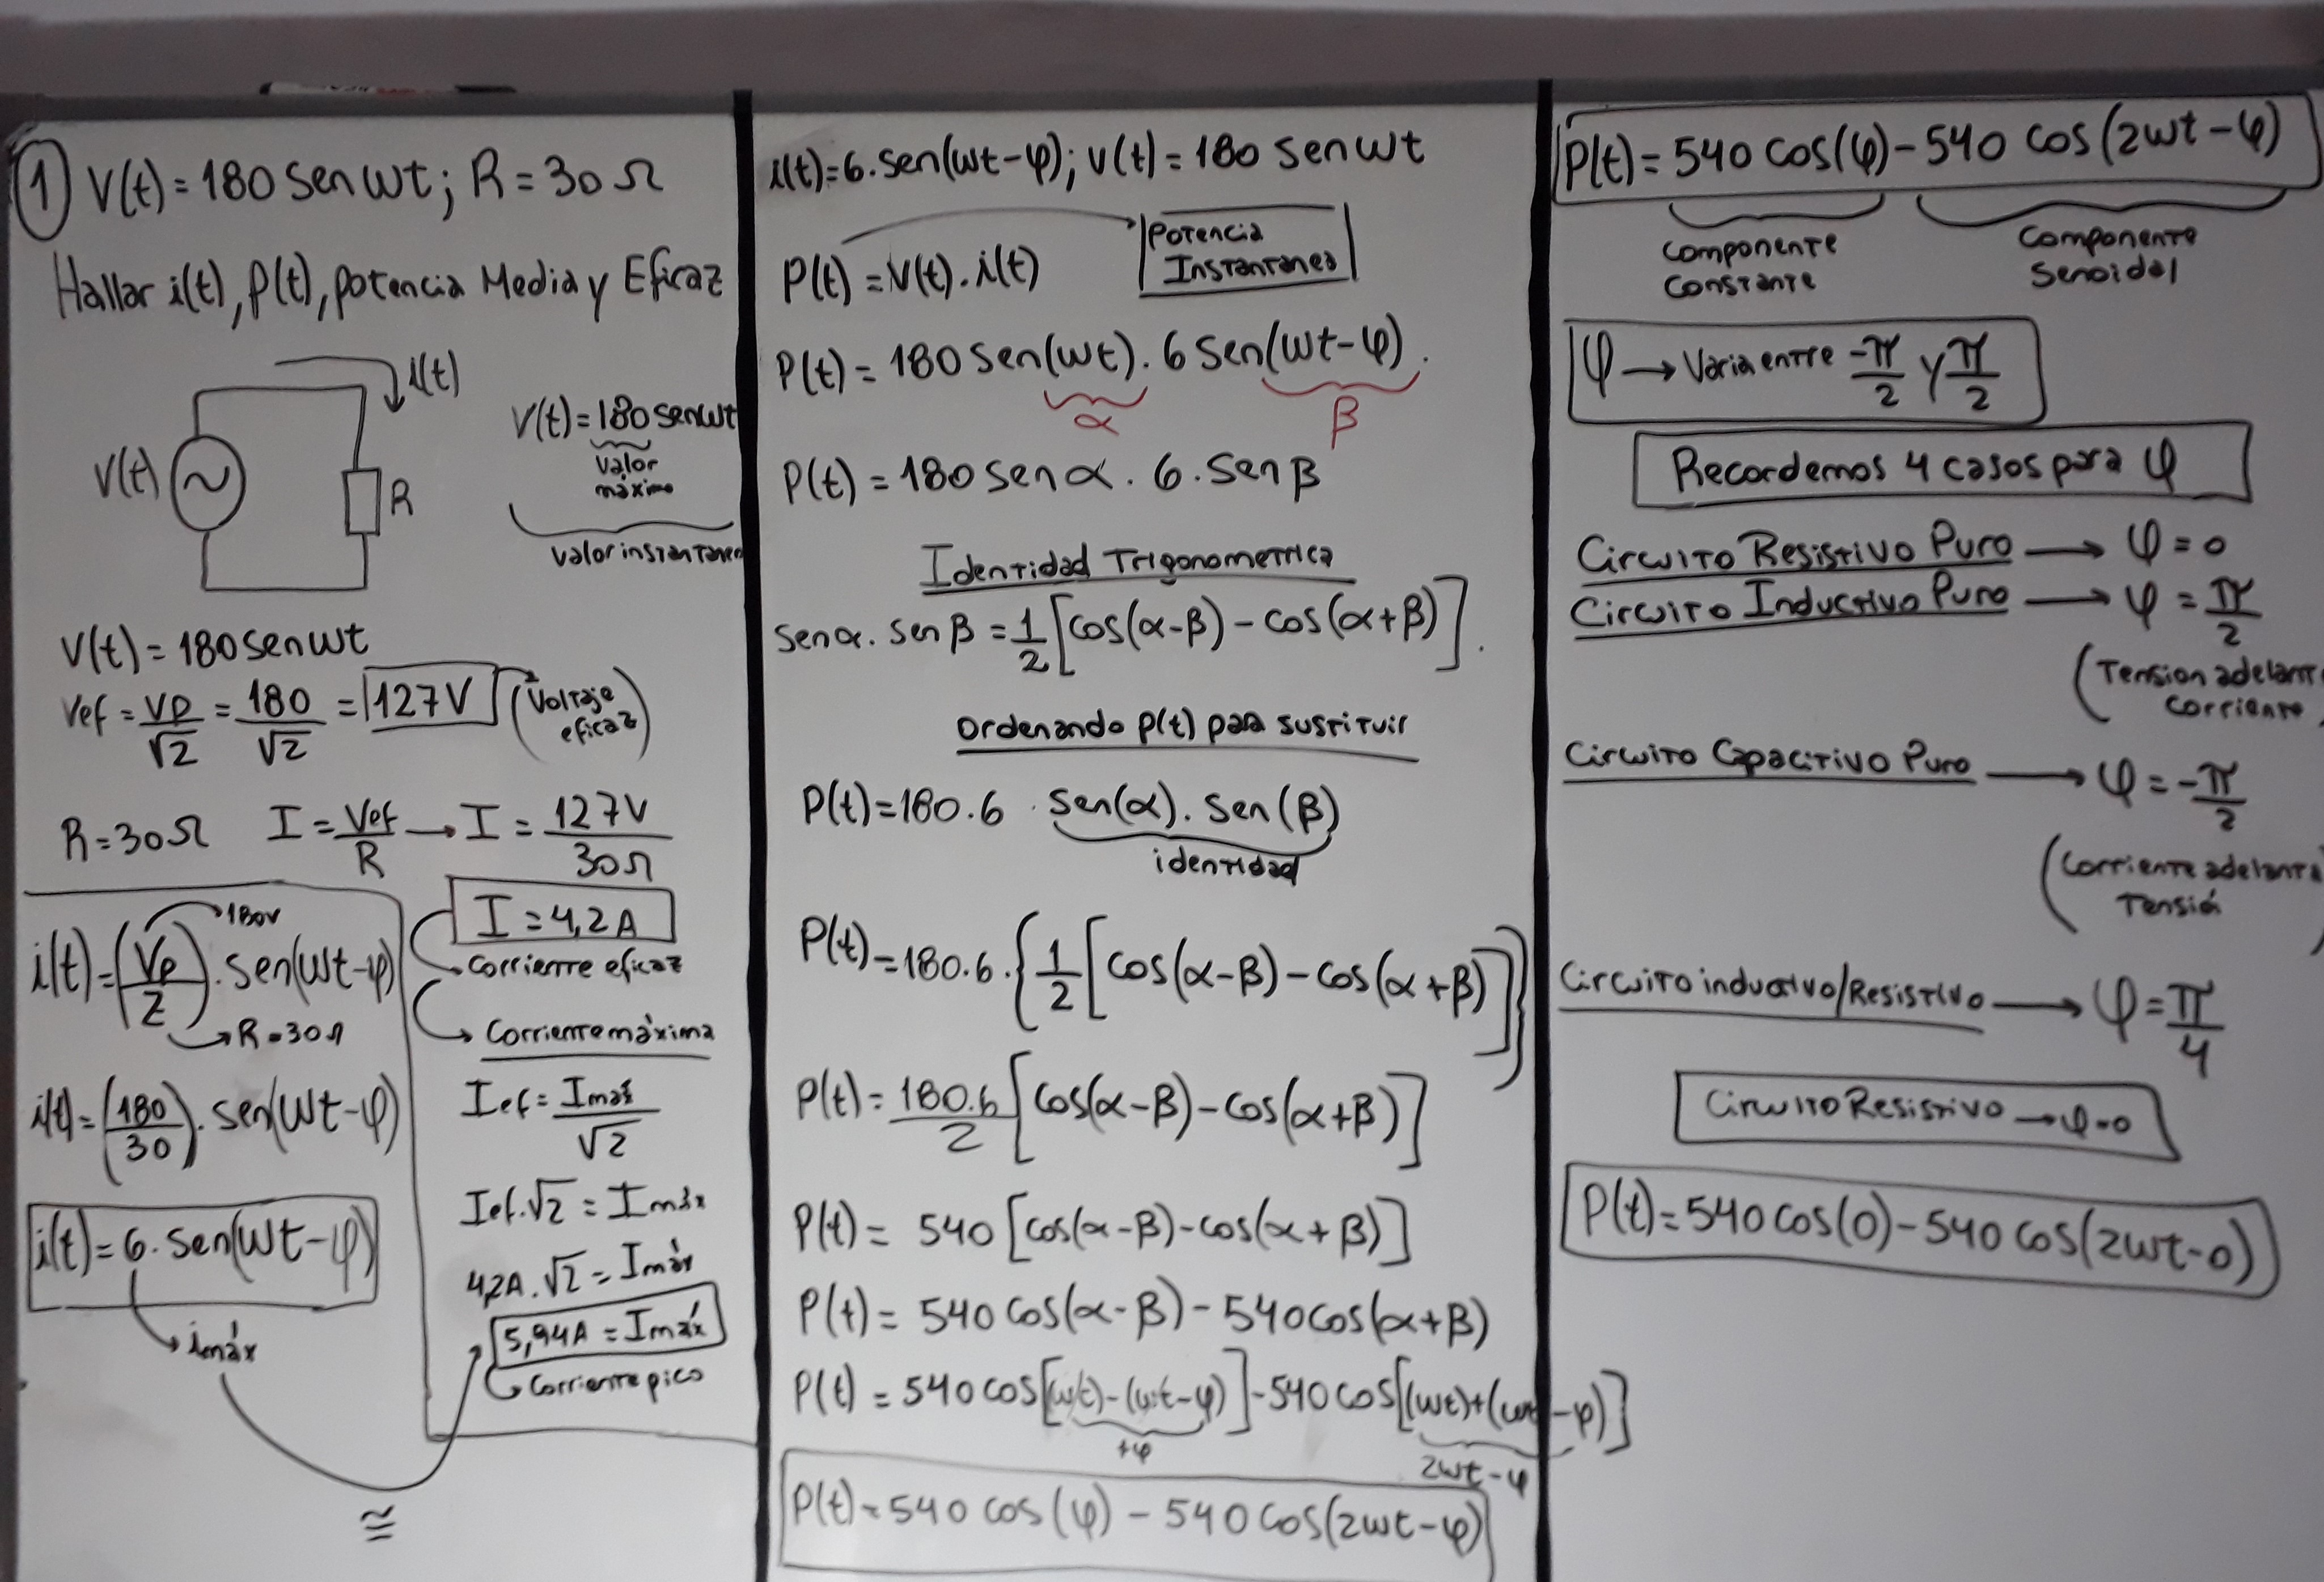 1 V(t) = 180 sen wt; R = 30 Ω
Hallar i(t), p(t), potencia Media y Eficaz
i(t)
V(t)
R
V(t) = 180 sen wt
valor
máximo
valor instantaneo
V(t) = 180 sen wt
Vef = Vp/√2 = 180/√2 = 127V (Voltaje
eficaz)
R = 30Ω I = Vef/R → I = 127V/30Ω
I = 4,2A
Corriente eficaz
Corriente máxima
Ief = Imáx/√2
Ief.√2 = Imáx
4,2A.√2 = Imáx
5,94A = Imáx
Corriente pico
180V
i(t) = (Vp/Z). sen(wt-φ)
R=30Ω
i(t) = (180/30). sen(wt-φ)
i(t) = 6. sen(wt-φ)
imáx
≅
i(t)=6.sen(wt-φ); v(t) = 180 sen wt
Potencia
Instantanea
P(t) = V(t). i(t)
P(t) = 180 sen(wt). 6 sen(wt-φ).
α β
P(t) = 180 sen α. 6. sen β
Identidad Trigonometrica
sen α. sen β = 1/2 [cos(α-β) - cos(α+β)].
Ordenando p(t) para sustituir
P(t) = 180.6 . sen(α). sen(β)
identidad
P(t) = 180.6.{1/2 [cos(α-β) - cos(α+β)]}
P(t) = 180.6/2 [cos(α-β) - cos(α+β)]
P(t) = 540 [cos(α-β) - cos(α+β)]
P(t) = 540 cos(α-β) - 540cos(α+β)
P(t) = 540 cos[(wt)-(wt-φ)] - 540 cos[(wt)+(wt-φ)]
+φ 2wt-φ
P(t) = 540 cos(φ) - 540 cos(2wt-φ)
P(t) = 540 cos(φ) - 540 cos(2wt-φ)
Componente
Constante
Componente
Senoidal
φ → Varia entre -π/2 y π/2
Recordemos 4 casos para φ
Circuito Resistivo Puro → φ = 0
Circuito Inductivo Puro → φ = π/2
(Tension adelanta
Corriente)
Circuito Capacitivo Puro → φ = -π/2
(Corriente adelanta
Tensión)
Circuito inductivo/Resistivo → φ = π/4
Circuito Resistivo → φ=0
P(t) = 540 cos(0) - 540 cos(2wt-0)